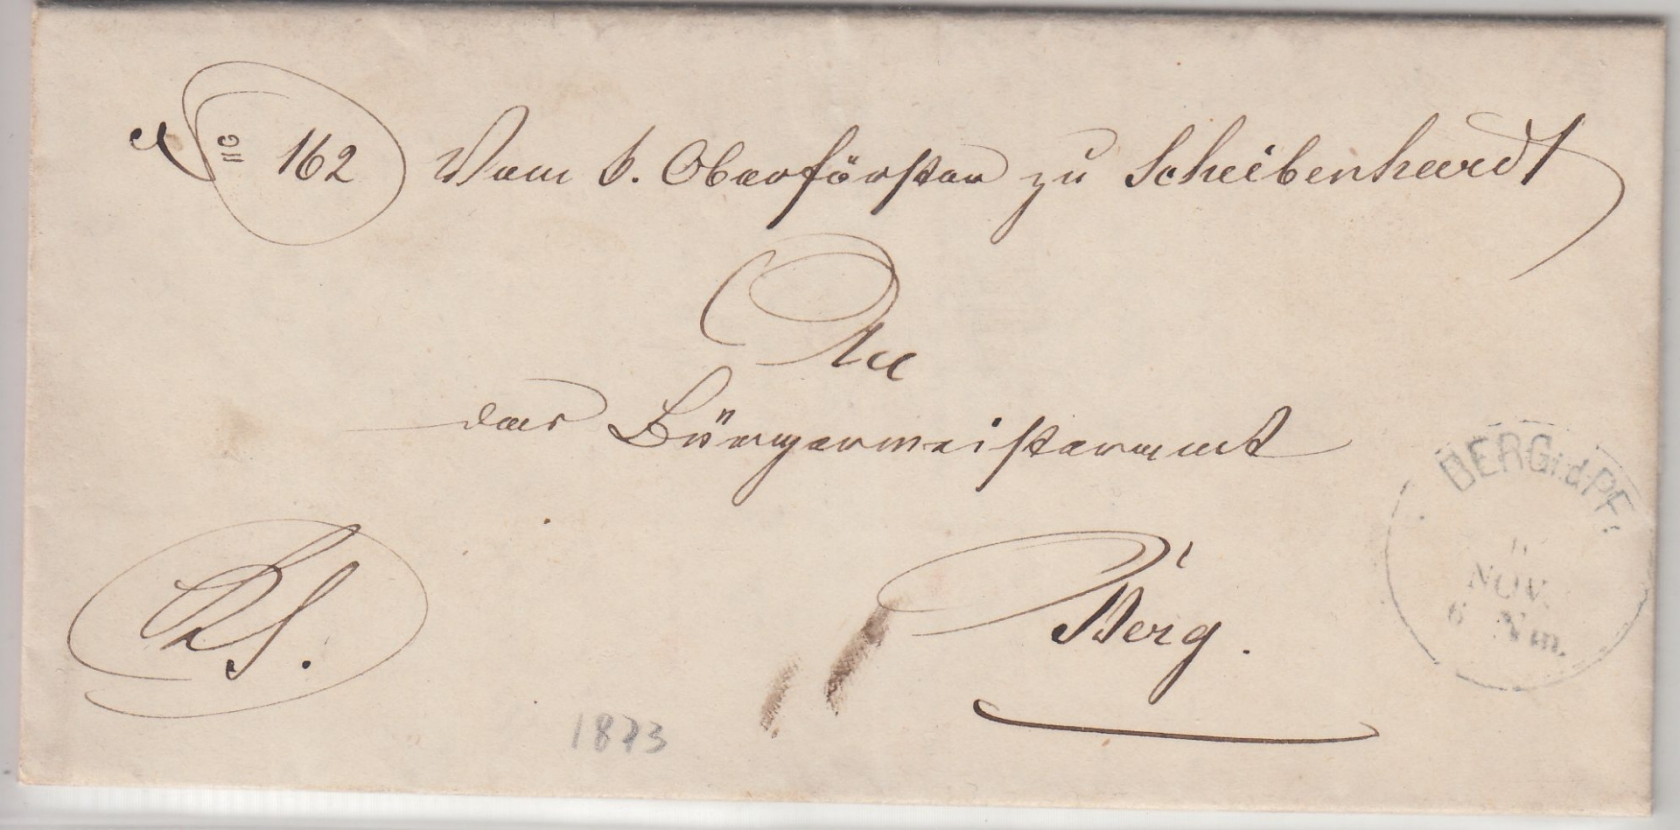 No 162 Vom k. Oberförster zu Scheibenhardt
An
das Bürgermeisteramt
RS.
Berg.
1873
BERG i.d.PF.
NOV.
6 Nm.